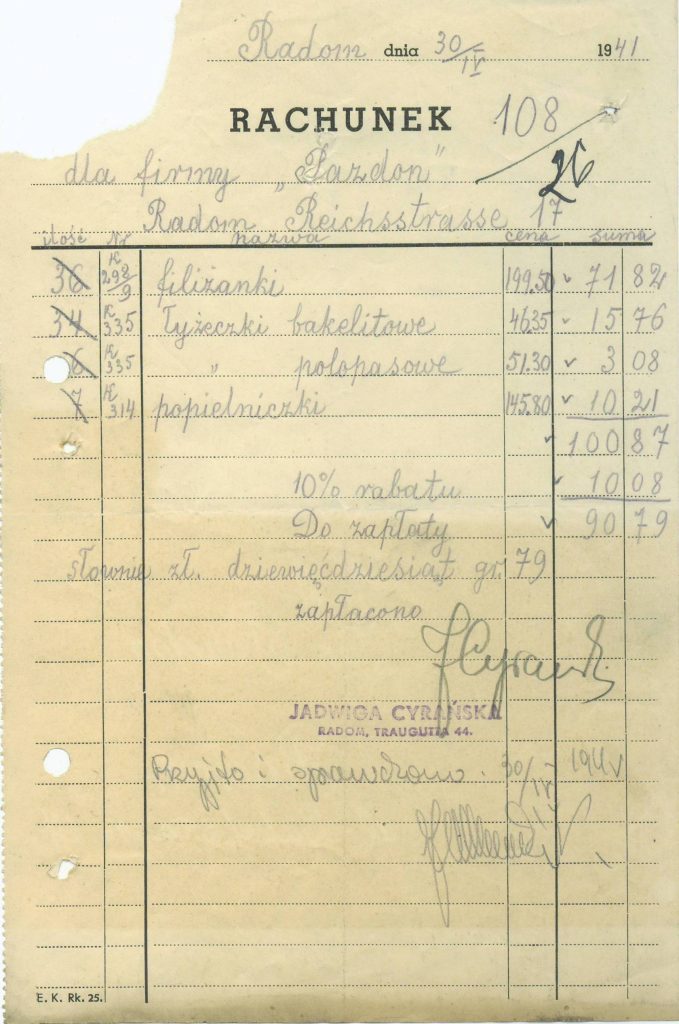 Radom dnia 30/IV 1941
RACHUNEK 108
26
dla firmy „Pazdon"
Radom Reichsstrasse 17
ilość Nr nazwa cena suma
36 K 298/9 filiżanki 199.50 71 82
34 K 335 łyżeczki bakelitowe 46.35 15 76
6 K 335 „ polopasowe 51.30 3 08
7 K 314 popielniczki 145.80 10 21
100 87
10% rabatu 10 08
Do zapłaty 90 79
słownie zł. dziewięćdziesiąt gr. 79
„zapłacono„
JCyrańsk
JADWIGA CYRAŃSKA
RADOM, TRAUGUTTA 44.
Przyjęto i sprawdzono. 30/IV 1941
E. K. Rk. 25.